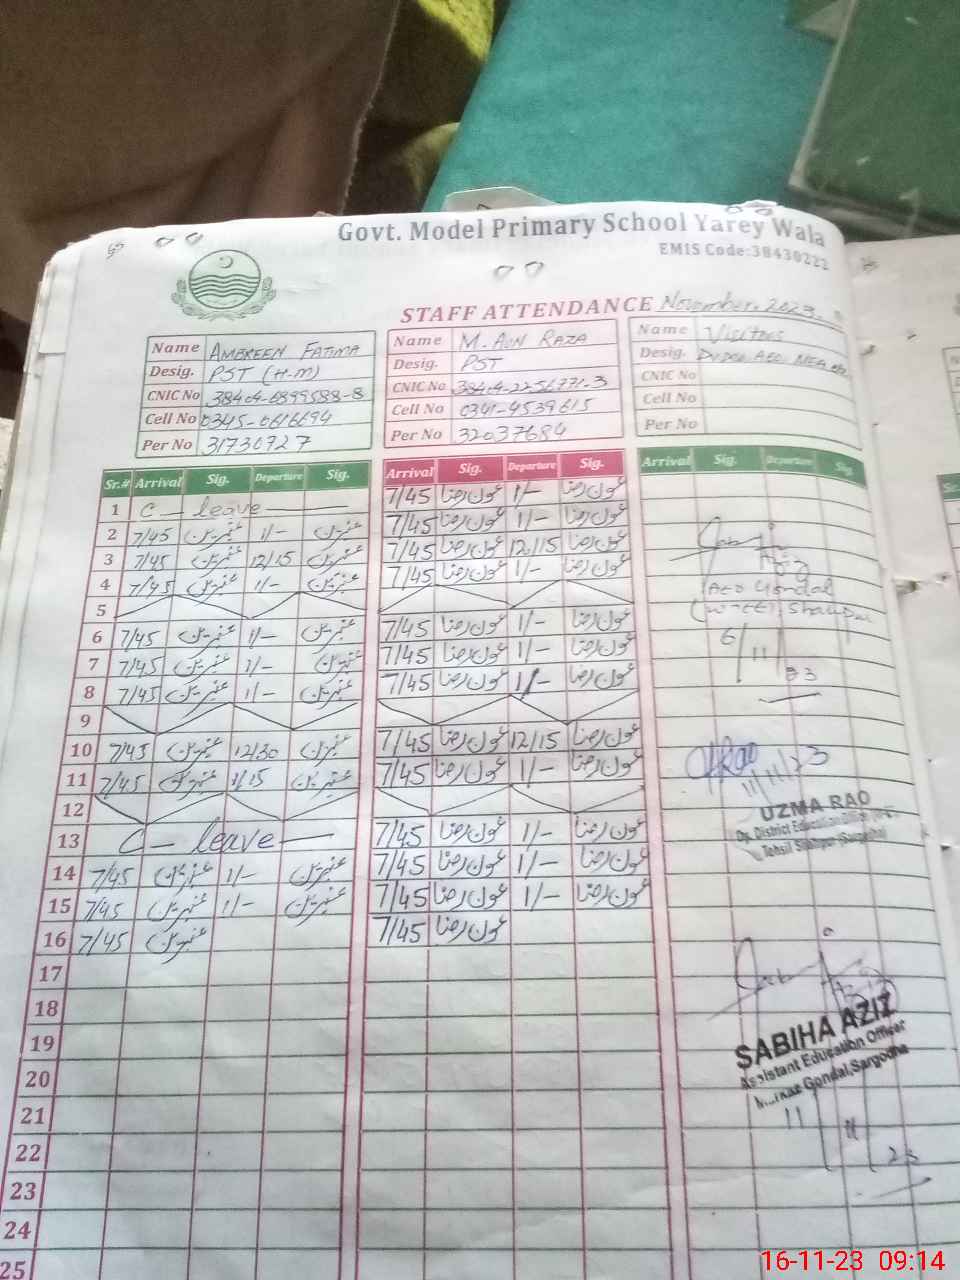 Govt. Model Primary School Yarey Wala
EMIS Code:38430222
STAFF ATTENDANCE November. 2023
Name AMBREEN FATIMA
Desig. PST (H-M)
CNIC No 38404-6899588-8
Cell No 0345-0616694
Per No 31730727
Name M. AON RAZA
Desig. PST
CNIC No 38404-2256771-3
Cell No 0341-4539615
Per No 32037684
Name Visitors
Desig.
CNIC No
Cell No
Per No
Sr.# Arrival Sig. Departure Sig. Arrival Sig. Departure Sig. Arrival Sig. Departure Sig.
1 C — leave 7/45 عون رضا 1/- عون رضا
2 7/45 عنبرین 1/- عنبرین 7/45 عون رضا 1/- عون رضا
3 7/45 عنبرین 12/15 عنبرین 7/45 عون رضا 12/15 عون رضا
4 7/45 عنبرین 1/- عنبرین 7/45 عون رضا 1/- عون رضا
5
6 7/45 عنبرین 1/- عنبرین 7/45 عون رضا 1/- عون رضا
7 7/45 عنبرین 1/- عنبرین 7/45 عون رضا 1/- عون رضا
8 7/45 عنبرین 1/- عنبرین 7/45 عون رضا 1/- عون رضا
9
10 7/45 عنبرین 12/30 عنبرین 7/45 عون رضا 12/15 عون رضا
11 7/45 عنبرین 1/15 عنبرین 7/45 عون رضا 1/- عون رضا
12
13 C — leave 7/45 عون رضا 1/- عون رضا
14 7/45 عنبرین 1/- عنبرین 7/45 عون رضا 1/- عون رضا
15 7/45 عنبرین 1/- عنبرین 7/45 عون رضا 1/- عون رضا
16 7/45 عنبرین 7/45 عون رضا
17
18
19
20
21
22
23
24
25
AEO Gondal
6/11/23
11/11/23
UZMA RAO
Dy. District Education Officer
Tehsil Shahpur (Sargodha)
SABIHA AZIZ
Assistant Education Officer
Markaz Gondal, Sargodha
11/11/23
16-11-23 09:14